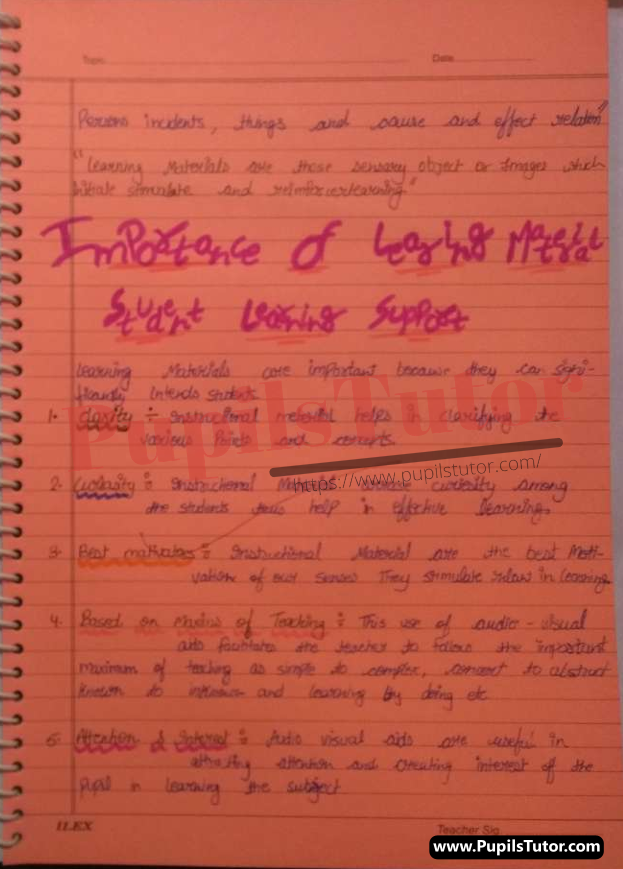 Date
Persons incidents, things and cause and effect relation"
"Learning Materials are those sensory object or Images which
initiate stimulate and reinforcerlearning"
Importance of Learning Material
Student Learning Support
Learning Materials are important because they can signi-
ficantly students
1. Clarity ÷ Instructional material helps in clarifying the
various Points and concepts.
PupilsTutor
https://www.pupilstutor.com/
2. Curiosity : Instructional Materials curiosity among
the students thus help in effective learning.
3. Best motivators : Instructional Material are the best Moti-
vation of our senses They stimulate in learning
4. Based on Maxims of Teaching : This use of audio-visual
aids facilitates the teacher to follow the important
maximum of teaching as simple to complex, to abstract
known to and learning by doing etc
5. Attention & Interest : Audio visual aids are useful in
attracting attention and creating interest of the
Pupil in learning the subject
ILEX
Teacher Sig
www.PupilsTutor.com